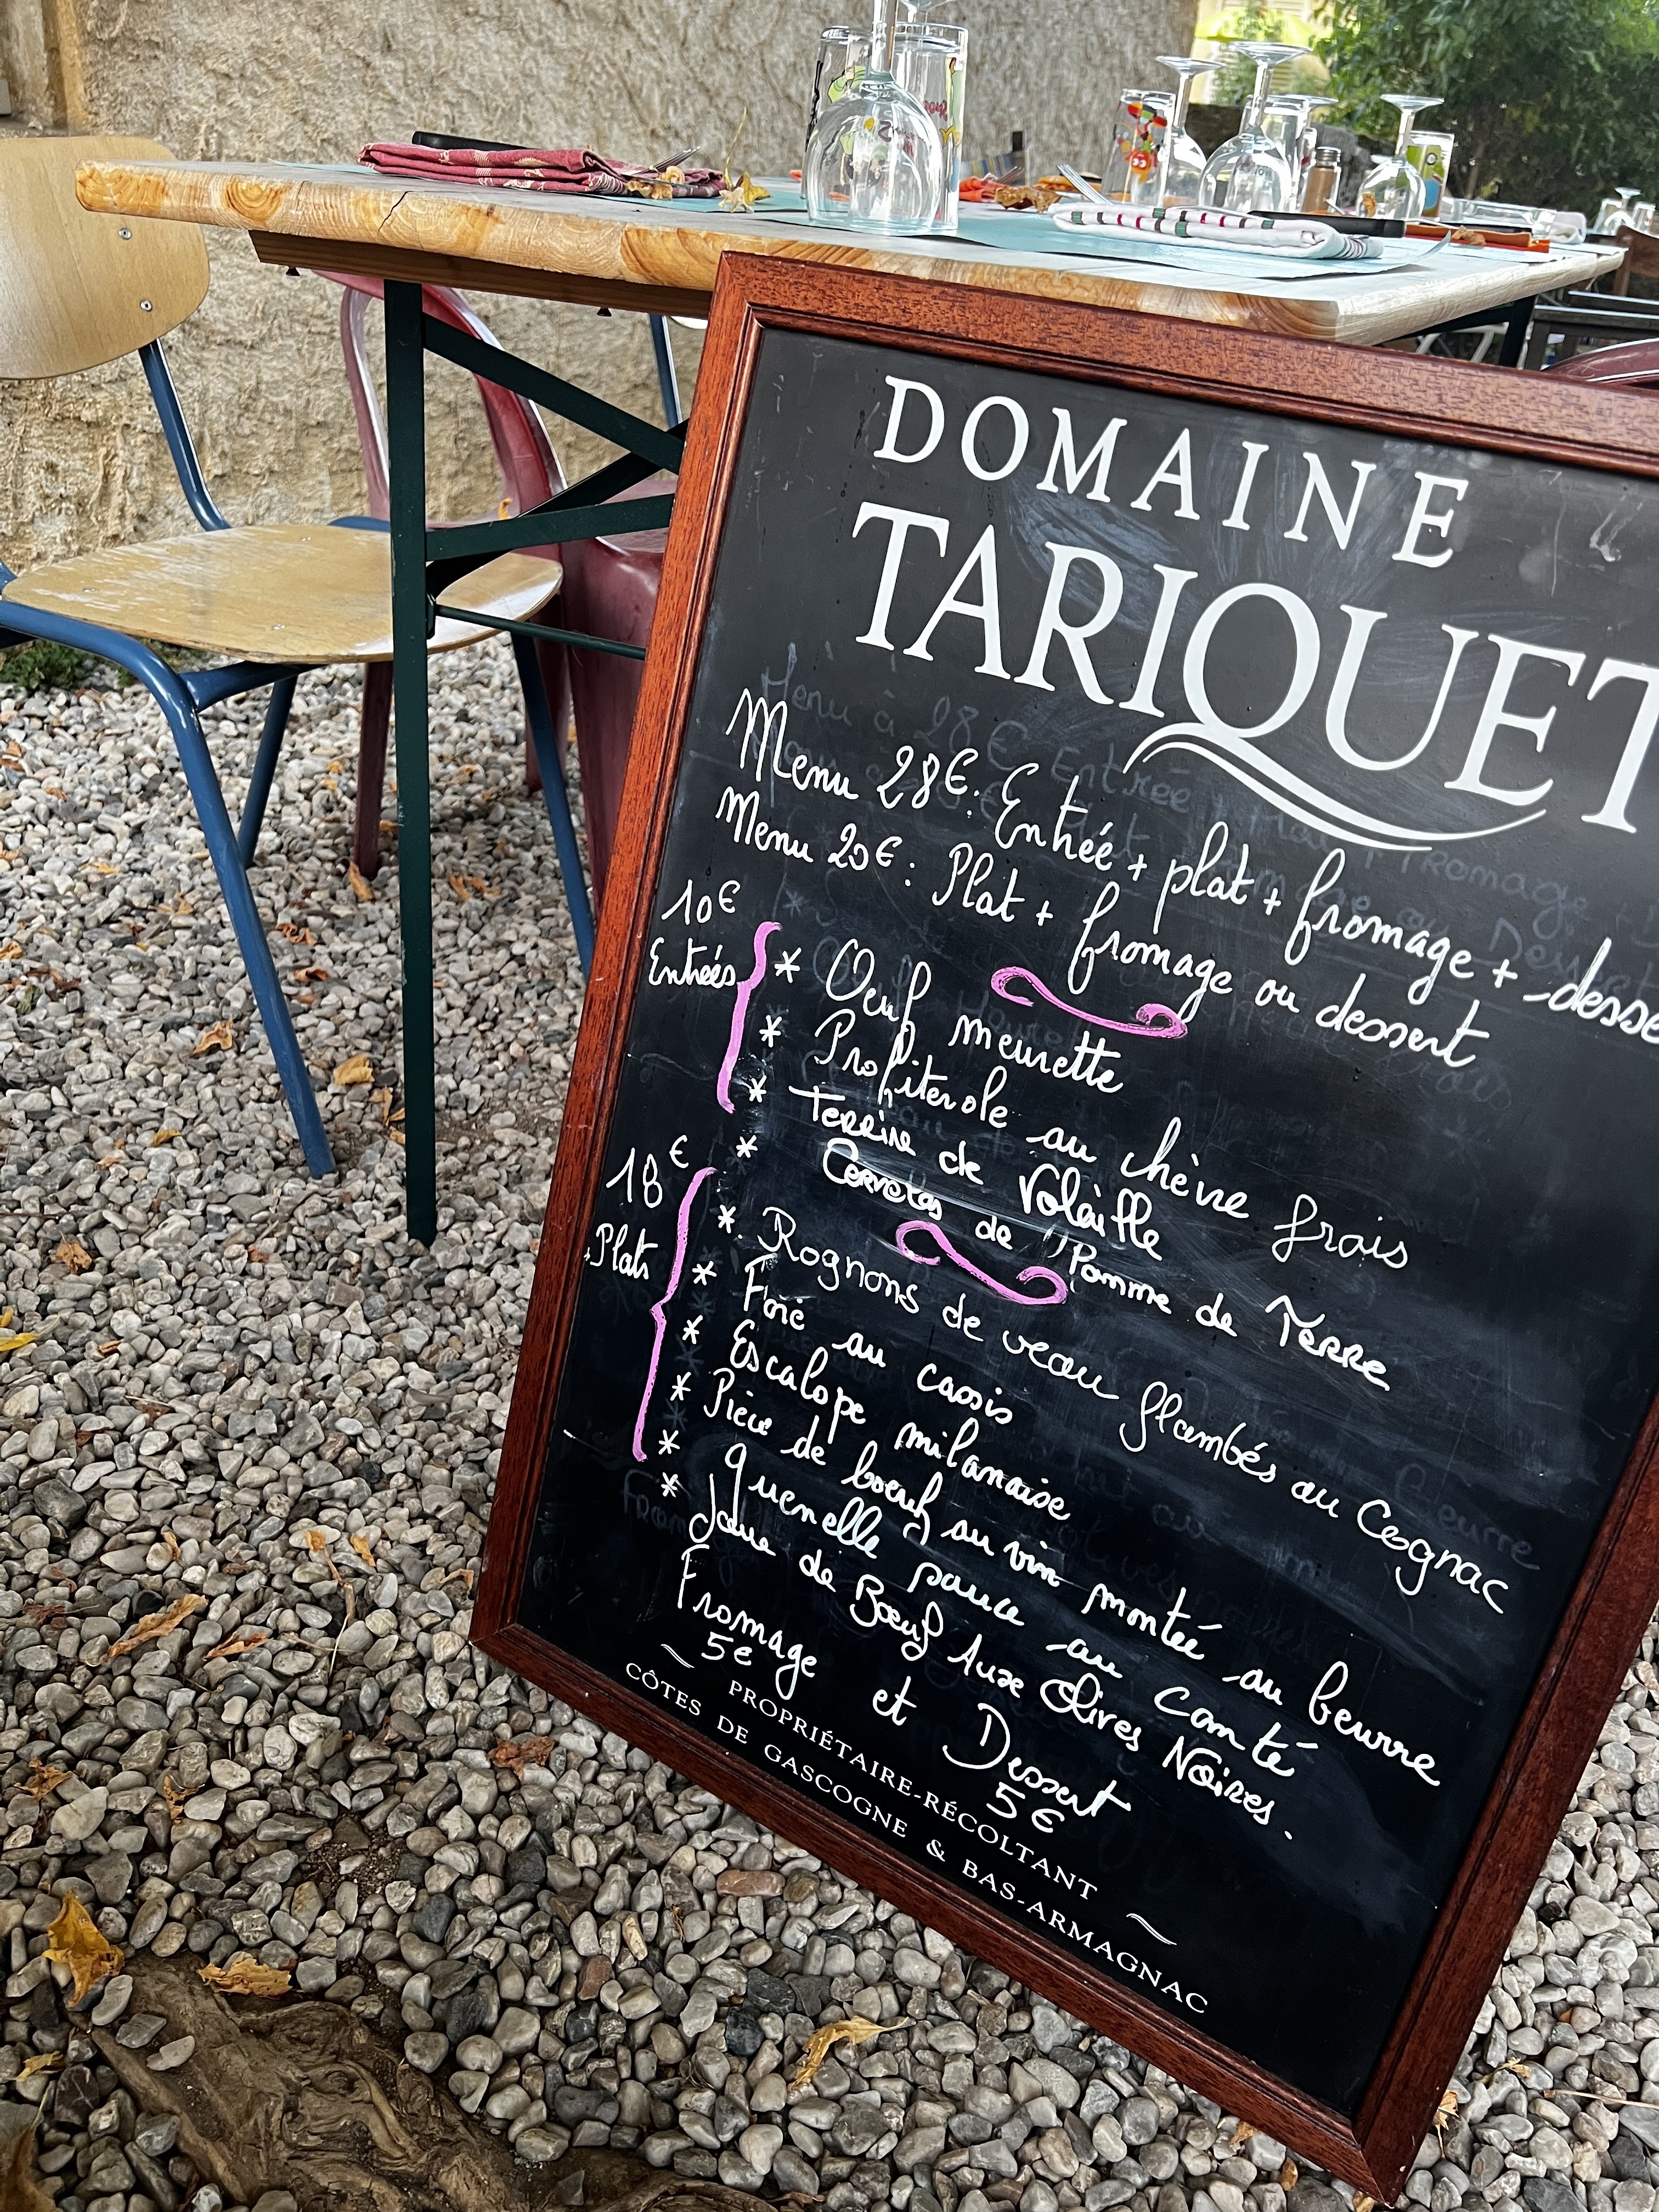 DOMAINE
TARIQUET
Menu 28€: Entrée + plat + fromage + desse
Menu 20€: Plat + fromage ou dessert
10€
Entrées
* Oeuf meurette
* Profiterole au chèvre frais
* Terrine de Volaille
* Cervelas de Pomme de Terre
18€
Plats
* Rognons de veau flambés au Cognac
* Foie au cassis
* Escalope milanaise
* Pièce de boeuf au vin montée au beurre
* Quenelle sauce au comté
* Joue de Boeuf Aux Olives Noires.
Fromage et Dessert
5€ 5€
PROPRIÉTAIRE-RÉCOLTANT
CÔTES DE GASCOGNE & BAS-ARMAGNAC